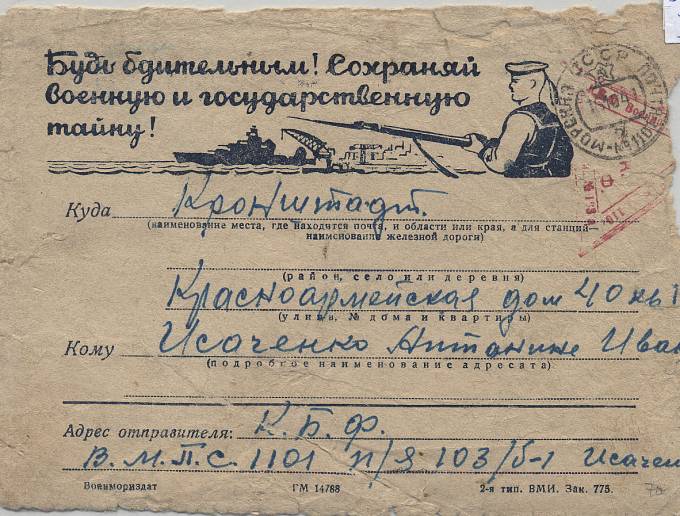 Будь бдительным! Сохраняй
военную и государственную
тайну!
Куда Кронштадт.
(наименование места, где находится почта, и области или края, а для станций
наименование железной дороги)
(район, село или деревня)
Красноармейская дом 40 кв
(улица, № дома и квартиры)
Кому Исаченко Антонине Ива
(подробное наименование адресата)
Адрес отправителя: К.Б.Ф.
В.М.П.С. 1101 п/я 103/б-1 Исачен
Военмориздат ГМ 14788 2-я тип. ВМИ. Зак. 775.
СССР